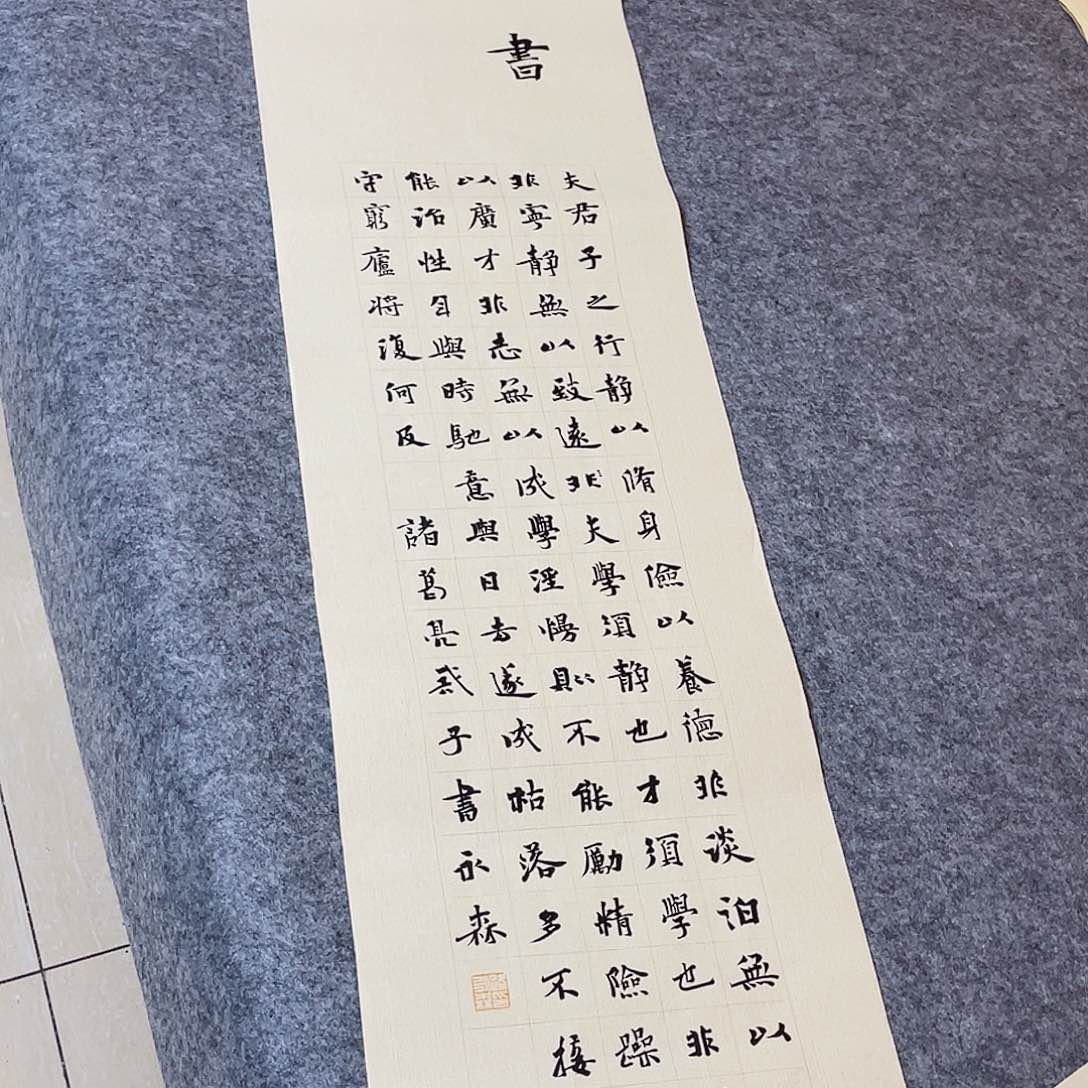 書
夫君子之行静以脩身儉以養德非淡泊無以
非寧静無以致遠非夫學須静也才須學也非
以廣才非志無以成學淫慢則不能勵精險躁
能治性年與時馳意與日去遂成枯落多不接
守窮廬将復何及 諸葛亮戒子書永森